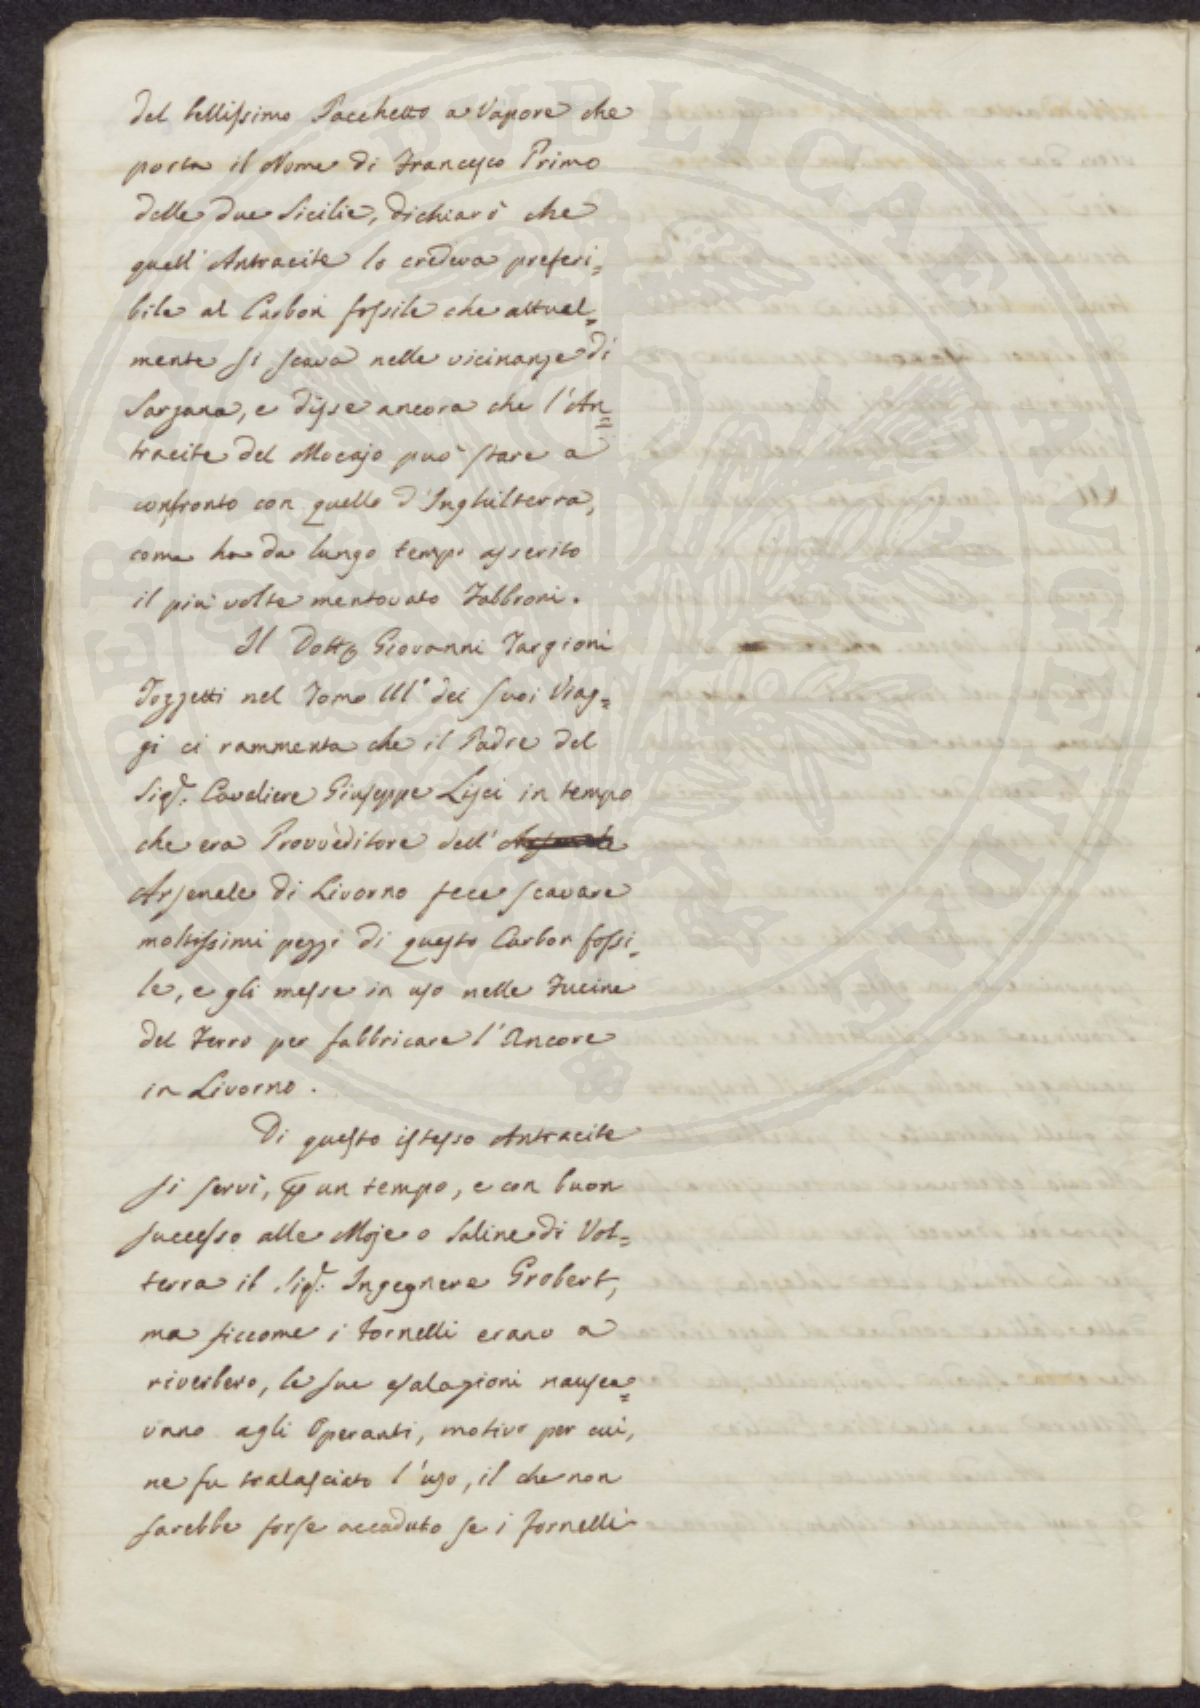 del bellissimo Pacchetto a Vapore che
porta il Nome di Francesco Primo
delle due Sicilie, dichiarò che
quell'Antracite lo credeva preferi=
bile al Carbon fossile che attual=
mente si scava nelle vicinanze di
Sarzana, e disse ancora che l'An=
tracite del Mocajo può stare a
confronto con quello d'Inghilterra,
come ha da lungo tempo asserito
il più volte mentovato Fabbroni.
Il Dottr Giovanni Targioni
Tozzetti nel Tomo III° dei suoi Viag=
gi ci rammenta che il Padre del
Sigr. Cavaliere Giuseppe Lisci in tempo
che era Provveditore dell'
Arsenale di Livorno fece scavare
moltissimi pezzi di questo Carbon fossi=
le, e gli messe in uso nelle Fucine
del Ferro per fabbricare l'Ancore
in Livorno.
Di questo istesso Antracite
si servì, p un tempo, e con buon
successo alle Moje o Saline di Vol=
terra il Sigr. Ingegnere Grobert,
ma siccome i fornelli erano a
riverbero, le sue esalazioni nausea=
vano agli Operanti, motivo per cui,
ne fu tralasciato l'uso, il che non
sarebbe forse accaduto se i fornelli